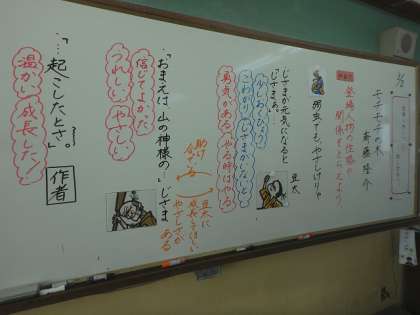 モチモチの木
斎藤隆介
登場人物の性格や
関係をとらえよう
弱虫でも、やさしけりゃ
じさまが元気になると
「じさまぁ。」
豆太
少しおくびょう
こわがり
勇気がある
やる時はやる
助け
豆太に
成長してほしい
やさしさが
ある
「おまえは、山の神様の」じさま
信じてよかった
うれしい
やさしい
「…起こしたとさ。」
作者
温かい
成長した!